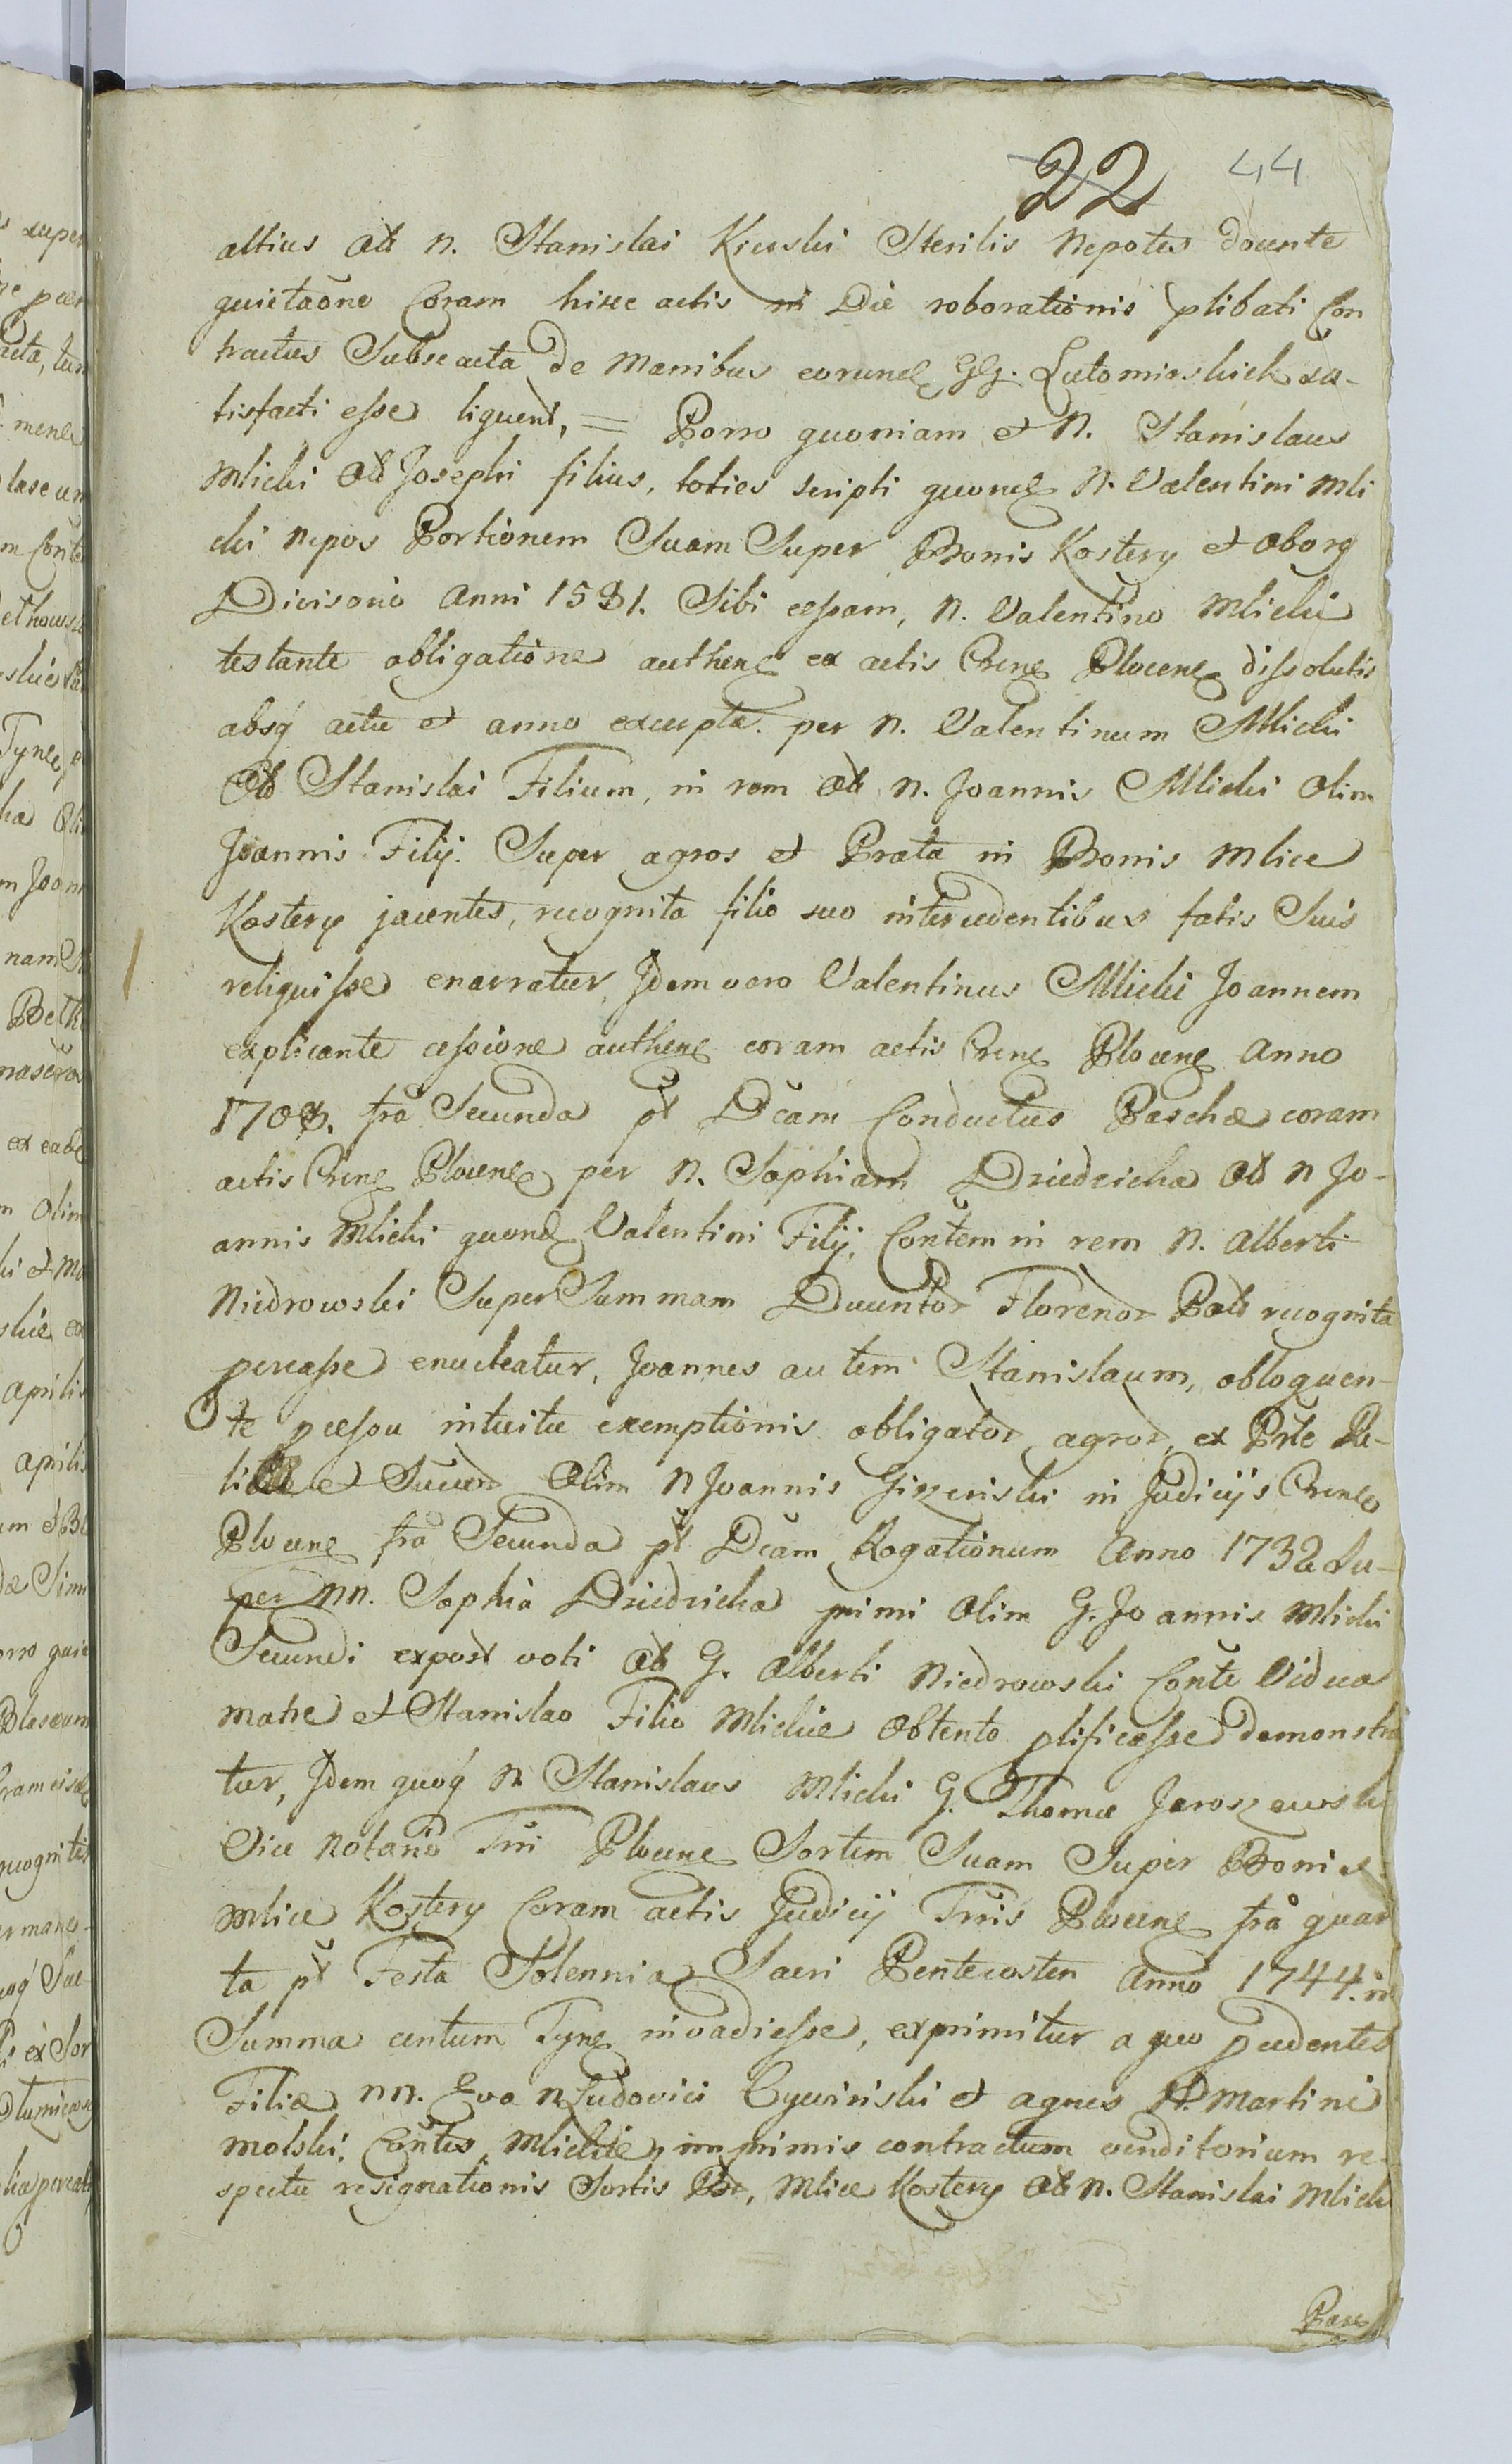 22 44
altius olt n. Stanislai Kreoski Sterilis Nepotes docente
quietaõne Coram hisce actis in Die roborationis plibati Con
tractus Subsecuta de Manibus eorund GG. Lutomirskich sa-
tisfacti esse liquent, = Porro quoniam et N. Stanislaus
Mlicki olt Josephi filius, toties scripti quond N. Valentini Mli
cki nepos Portionem Suam Super Bonis Kostery et oborg
Divisorio Anni 1581. Sibi cessam, N. Valentino Mlicki
testante obligatione authen ex actis Cren Plocen dissolutis
absq actu et anno excerpta. per n. Valentinum Mlicki
olt Stanislai Filium, in rem olt n. Joannis Mlicki olim
Joannis Filij. Super agros et Prata in Bonis Mlice
Kostery jacentes, recognita filio suo intercedentibus fatis Suis
reliquisse enarratur, Idem vero Valentinus Mlicki Joannem
explicante cessione authen coram actis Cren Plocen Anno
170 frã Secunda pt Dcãm Conductus Paschæ coram
actis Cren Plocen per N. Sophiam Driedzicka olt n Jo-
annis Mlicki quond Valentini Filij, Contem in rem N. Alberti
Niedrowski Super Summam Ducentor Florenor Pol recognita
pcreasse enucleatur, Joannes autem Stanislaum, obloquen-
te pcessu intuitu exemptionis obligator agror, ex Prte
et Succor Olim N Joannis Giżeriski in Judicijs Cren
Plocen frã Secunda pt Dcãm Rogationum Anno 1732 Su-
per NN. Sophia Driedzicka primi Olim G. Joannis Mlicki
Secundi expost voti olt G. Alberti Niedrowski Conte Vidua
matre et Stanislao Filio Mlickie Obtento plificasse demonstra
tur, Idem quoq N Stanislaus Mlicki G. Thomæ Jaroszewski
Vice Notario Trri Plocen Sortem Suam Super Bonis
Mlice Kostery Coram actis Judicij Trris Plocen frã quar
ta pt Festa Solennia Sacri Pentecosten Anno 1744. in
Summa centum Tyn invadiesse, exprimitur a quo pcedentes
Filiæ NN. Eva N Ludovici Cywiński et Agnes N. Martini
Molski. Contes, Mlickie, imprimis contractum venditorium re-
spectu resignationis Sortis Bon, Mlice Kostery olt N. Stanislai Mlicki